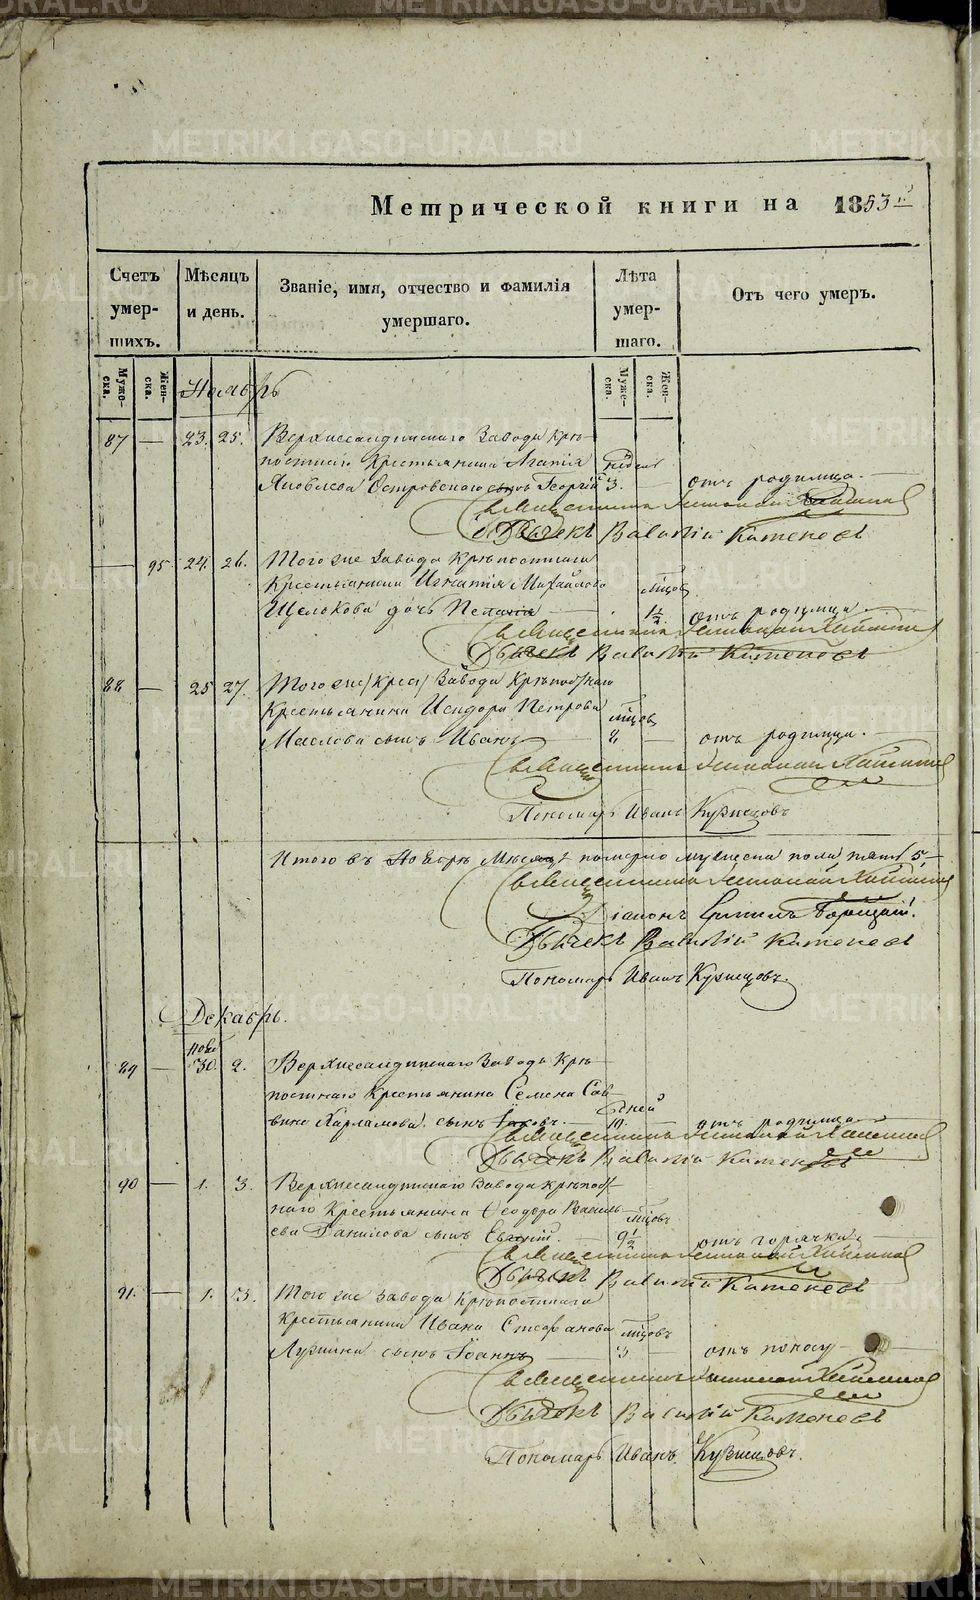 METRIKI.GASO-URAL.RU
Метрической книги на 1853 г.
Счетъ умер-шихъ.
Мѣсяцъ и день.
Званіе, имя, отчество и фамилія умершаго.
Лѣта умер-шаго.
Отъ чего умеръ.
Мужеска.
Женска.
Мужеска.
Женска.
Ноябрь
87 — 23. 25. Верхнесалдинскаго Завода крѣ-
постнаго Крестьянина Агапія недѣль
Яковлева Островскаго сынъ Георгій 3. — отъ родимца.
Священникъ
Дьячекъ Василій Каменевъ
— 95 24. 26. Того же Завода Крѣпостнаго
Крестьянина Игнатія Михайлова мѣсцовъ
Щелокова дочь Пелагія 1½ отъ родимца
Священникъ
Дьячекъ Василій Каменевъ
88 — 25 27. Того же Завода Крѣпостнаго
Крестьянина Исидора Петрова мѣсцовъ
Маслова сынъ Иванъ — отъ родимца.
Священникъ
Пономарь Иванъ Кузнецовъ
Итого въ Ноябрѣ Мѣсяцѣ померло мужеска пола пять 5,—
Священникъ
Діаконъ
Дьячекъ Василій Каменевъ
Пономарь Иванъ Кузнецовъ.
Декабрь.
Нояб
89 — 30. 2. Верхнесалдинскаго Завода Крѣ-
постнаго Крестьянина Семена Сав-
вина Харламова сынъ Іаковъ. дней 10. — отъ родимца
Священникъ
Дьячекъ Василій Каменевъ
90 — 1. 3. Верхнесалдинскаго Завода крѣпост-
наго Крестьянина Ѳеодора Василь мѣсцовъ
ева Данилова сынъ 9½ — отъ горячки
Священникъ
Дьячекъ Василій Каменевъ
91. — 1. 3. Того же Завода Крѣпостнаго
Крестьянина Ивана Стефанова мѣсцовъ
сынъ Іоаннъ 3 — отъ поносу
Священникъ
Дьячекъ Василій Каменевъ
Пономарь Иванъ Кузнецовъ.